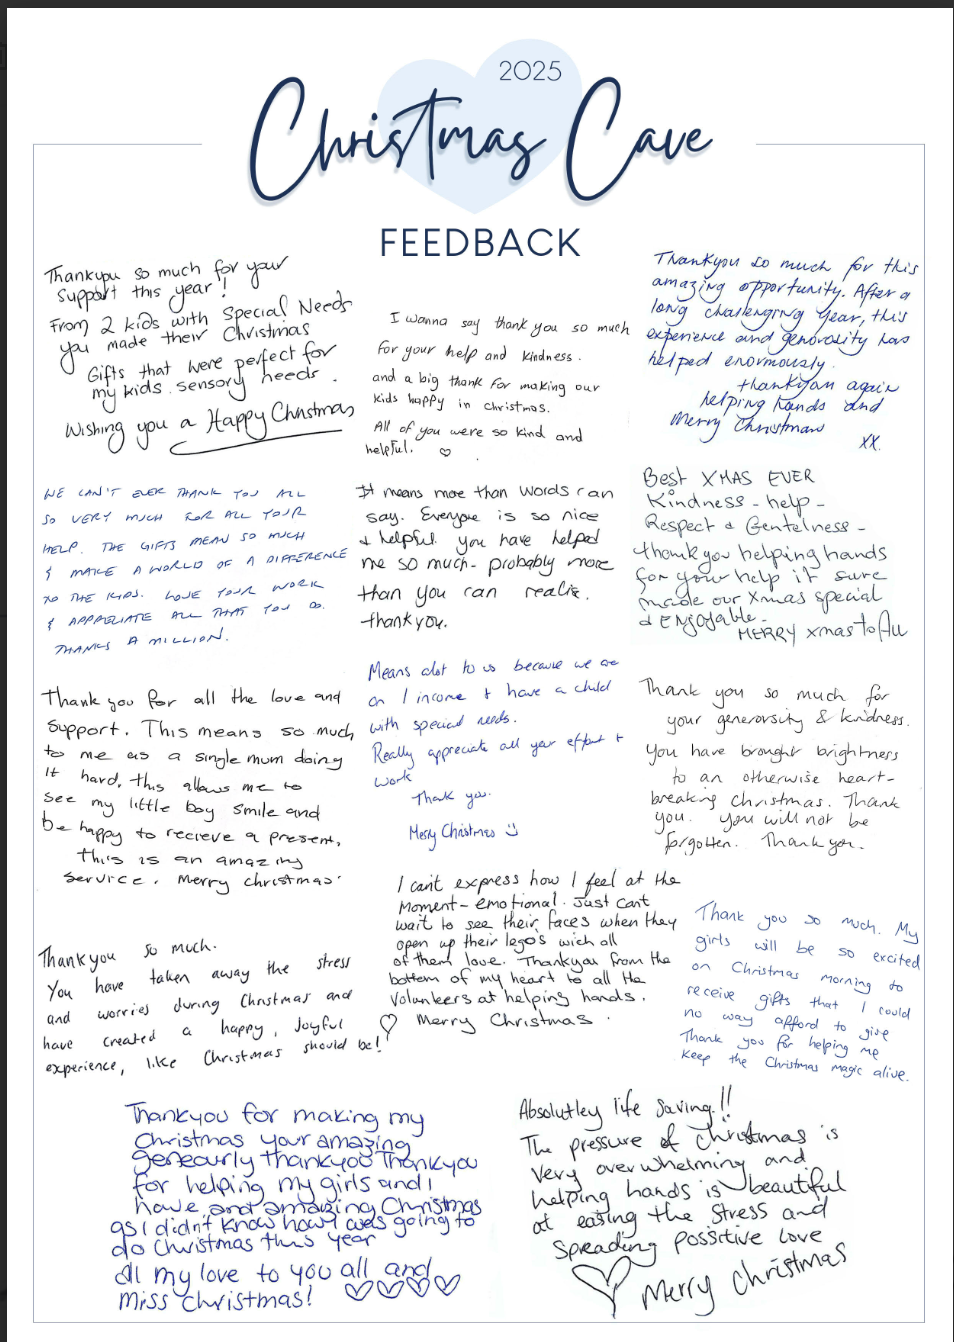 2025
Christmas Cave
FEEDBACK
Thankyou so much for your
support this year!
From 2 kids with Special Needs
you made their Christmas
Gifts that were perfect for
my kids sensory needs.
Wishing you a Happy Christmas
I wanna say thank you so much
for your help and kindness.
and a big thank for making our
kids happy in christmas.
All of you were so kind and
helpful. ♡
Thankyou so much for this
amazing opportunity. After a
long challenging year, this
experience and generosity has
helped enormously.
thankyou again
helping hands and
Merry Christmas
xx.
WE CAN'T EVER THANK YOU ALL
SO VERY MUCH FOR ALL YOUR
HELP. THE GIFTS MEAN SO MUCH
& MAKE A WORLD OF A DIFFERENCE
TO THE KIDS. LOVE YOUR WORK
& APPRECIATE ALL THAT YOU DO.
THANKS A MILLION.
It means more than words can
say. Everyone is so nice
& helpful. you have helped
me so much - probably more
than you can realise.
thankyou.
Best XMAS EVER
Kindness - help -
Respect & Gentelness -
thankyou helping hands
for your help it sure
made our Xmas special
& ENjoyable -
MERRY xmas to All
Thank you for all the love and
support. This means so much
to me as a single mum doing
it hard, this allows me to
see my little boy smile and
be happy to recieve a present,
this is an amazing
service. Merry christmas.
Means alot to us because we are
on 1 income + have a child
with special needs.
Really appreciate all your effort +
work
Thank you.
Merry Christmas ☺
Thank you so much for
your generorsity & kindness.
You have brought brightness
to an otherwise heart-
breaking christmas. Thank
you. you will not be
forgotten. Thank you.
Thankyou so much.
You have taken away the stress
and worries during Christmas and
have created a happy, Joyful
experience, like Christmas should be!
I can't express how I feel at the
moment - emotional. Just cant
wait to see their faces when they
open up their legos wich all
of them love. Thankyou from the
bottom of my heart to all the
Volunkeers at helping hands.
♡ Merry Christmas.
Thank you so much. My
girls will be so excited
on Christmas morning to
receive gifts that I could
no way afford to give
Thank you for helping me
keep the Christmas magic alive.
Thankyou for making my
Christmas your amazing
genearly thankyoo Thankyou
for helping my girls and I
have and amazing Christmas
as I didn't know how I was going to
do Christmas this year
all my love to you all and
miss christmas! ♡♡♡♡
Absolutley life saving!!
The pressure of christmas is
very overwhelming and
helping hands is beautiful
at easing the stress and
spreading possitive love
♡ Merry Christmas